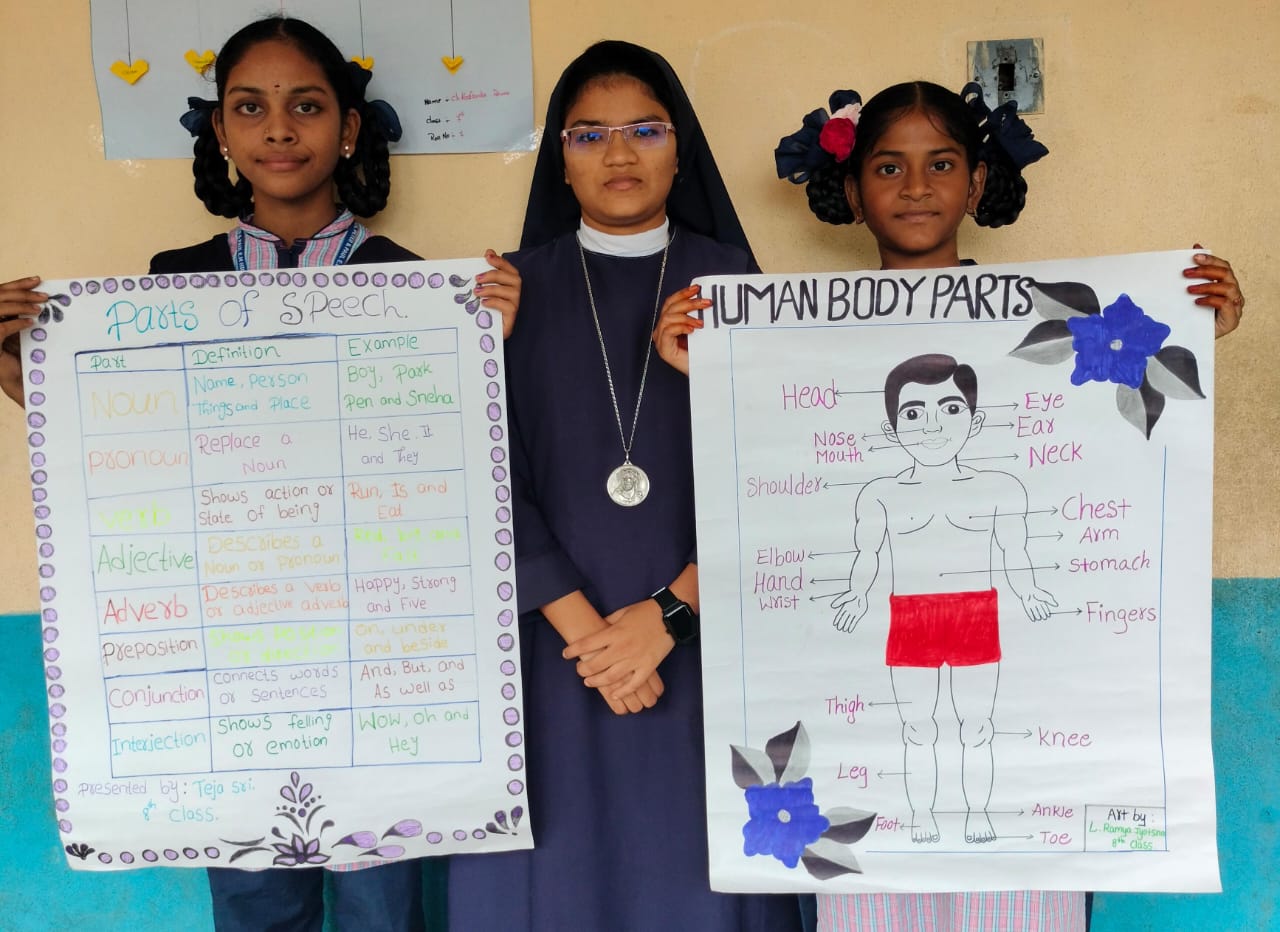 Name :- 
class :- 
Roll No :- 1
Parts of Speech.
Part Definition Example
Noun
Name, person
Things and Place
Boy, Park
Pen and Sneha
pronoun
Replace a
Noun
He, She, It
and They
verb
Shows action or
State of being
Run, Is and
Eat
Adjective
Describes a
Noun or pronoun
Adverb
Describes a verb
or adjective adverb
Happy, Strong
and Five
Preposition
on, under
and beside
Conjunction
connects words
or sentences
And, But, and
As well as
Interjection
Shows felling
or emotion
Wow, Oh and
Hey
presented by: Teja Sri.
8th class.
HUMAN BODY PARTS
Head
Eye
Ear
Nose
Mouth
Neck
Shoulder
Chest
Arm
Elbow
Stomach
Hand
Wrist
Fingers
Thigh
Knee
Leg
Ankle
Foot
Toe
Art by :
L. Ramya Jyotsna
8th Class